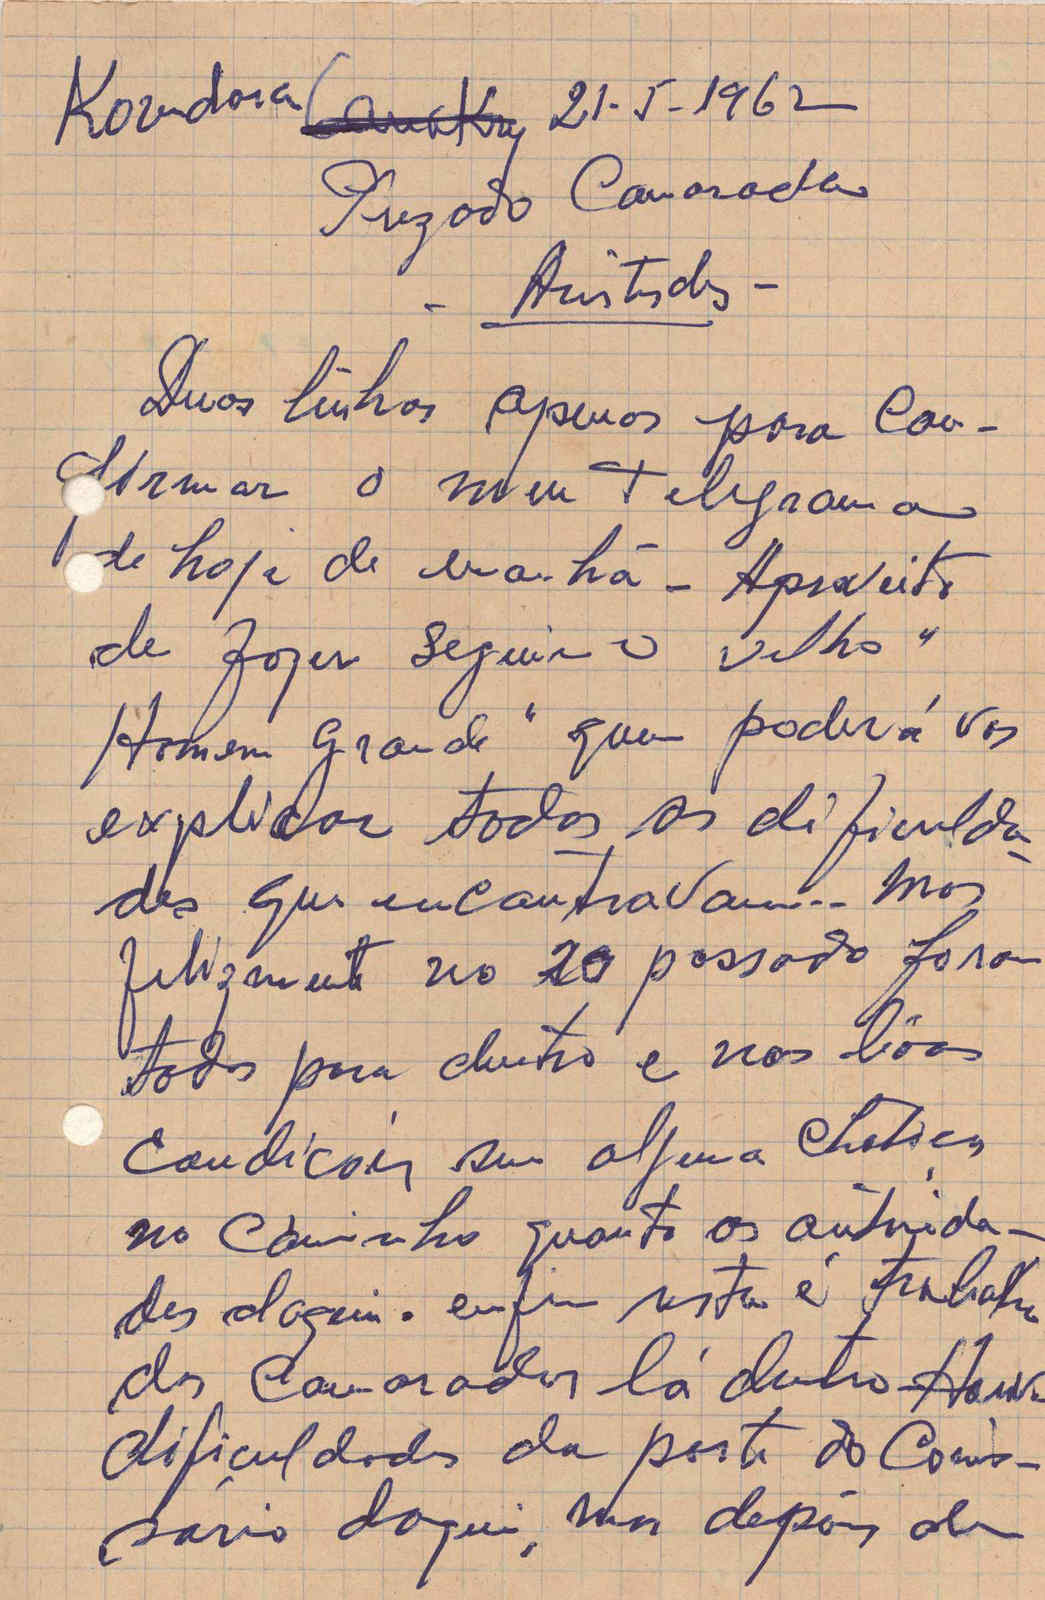 Koundara Conakry 21-5-1962
Prezado Camarada
- Aristides -
Duas linhas apenas para Con-
firmar o meu Telegrama
de hoje de manhã - Aproveito
de fazer seguir o velho "
Homem Grande" quem poderá vos
explicar todas as dificulda-
des que encontravam.. mas
felizmente no 20 passado foram
todos para dentro e nas bôas
Condicões sem alguma
no caminho quanto as autorida-
des daqui. enfim resta é trabalho
dos Camaradas lá dentro - Houve
dificuldades da parte do Comis-
sário daqui, mas depois de